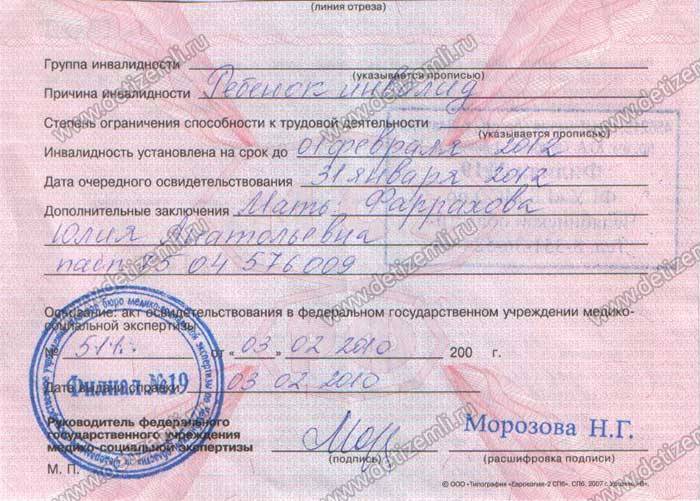 (линия отреза)
Группа инвалидности
(указывается прописью)
Причина инвалидности Ребенок инвалид
Степень ограничения способности к трудовой деятельности
(указывается прописью)
Инвалидность установлена на срок до 01 февраля 2012
Дата очередного освидетельствования 31 января 2012
Дополнительные заключения Мать: Фаррахова
Юлия Анатольевна
пасп 75 04 576009
Основание: акт освидетельствования в федеральном государственном учреждении медико-
социальной экспертизы
№ от « 03 » 02 2010 200 г.
Дата выдачи справки 03 02 2010
Филиал №19
Руководитель федерального
государственного учреждения
медико-социальной экспертизы
Морозова Н.Г.
(подпись) (расшифровка подписи)
М. П.
© ООО «Типография «Евроколия-2 СПб». СПб, 2007 г.
www.detizemli.ru